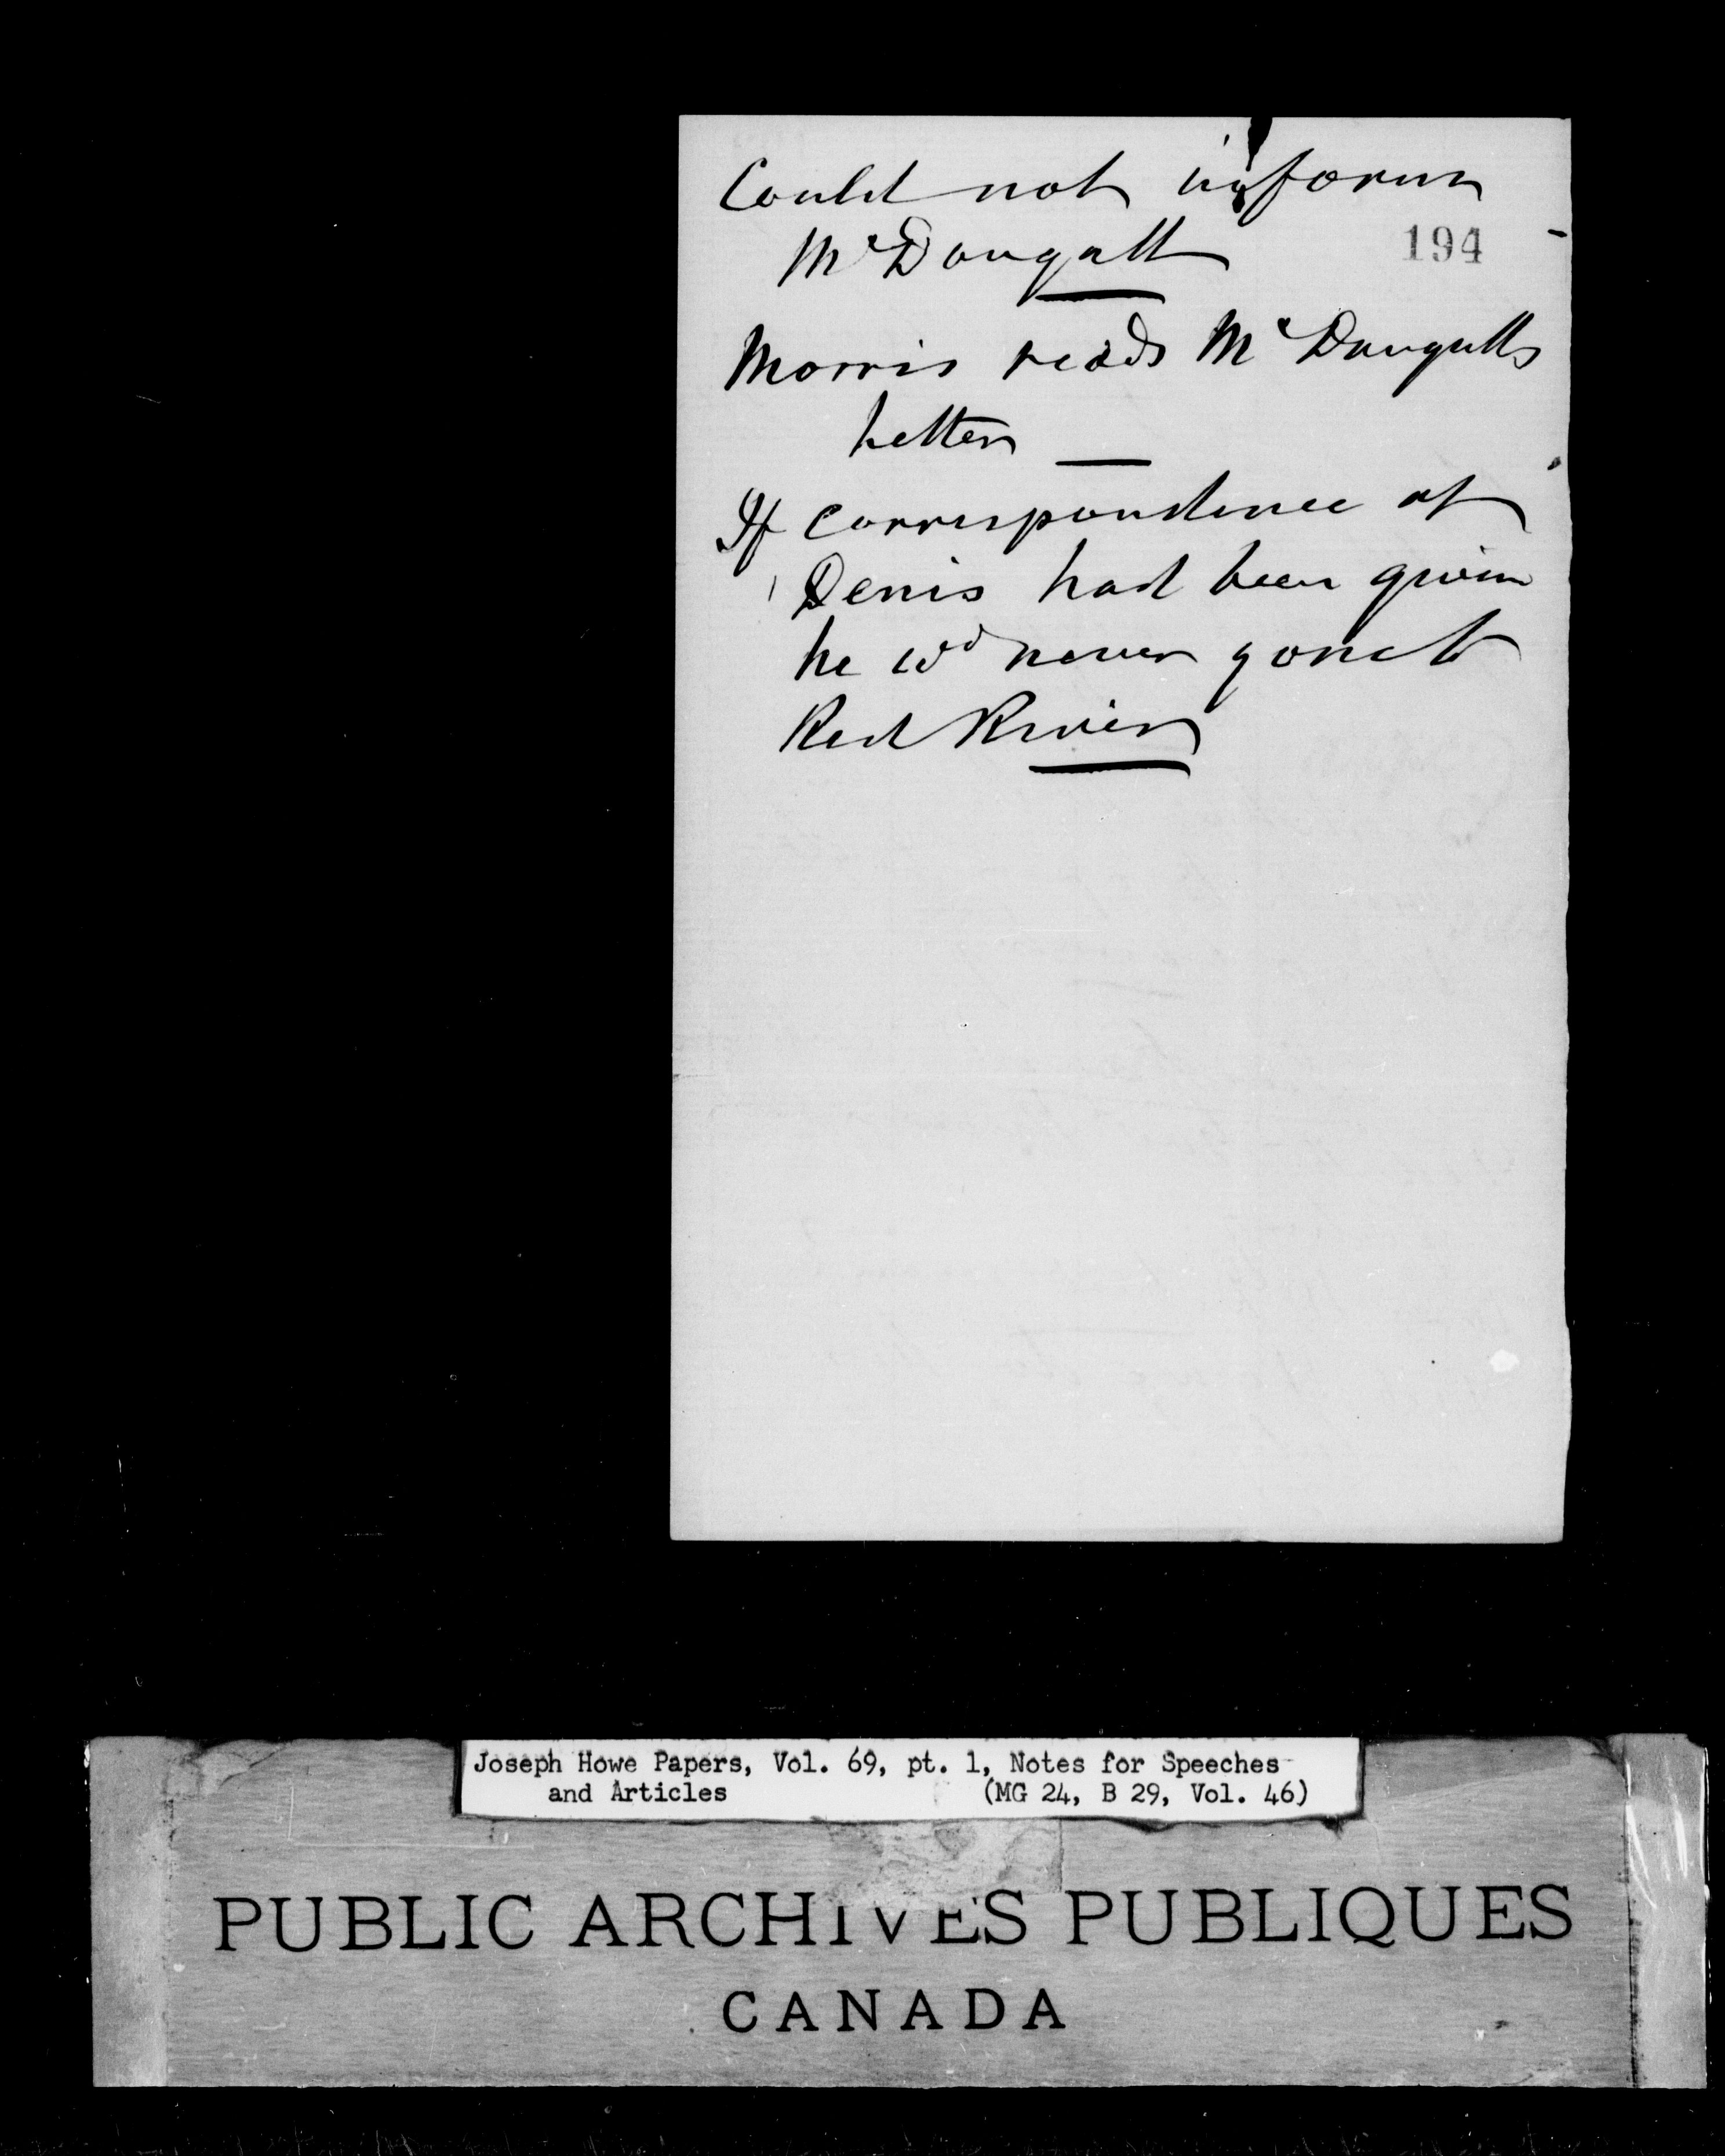 Could not inform
McDougall
194
Morris reads McDougalls
Letter —
If correspondence of
Denis had been given
he wd never gone to
Red River
Joseph Howe Papers, Vol. 69, pt. 1, Notes for Speeches
and Articles (MG 24, B 29, Vol. 46)
PUBLIC ARCHIVES PUBLIQUES
CANADA